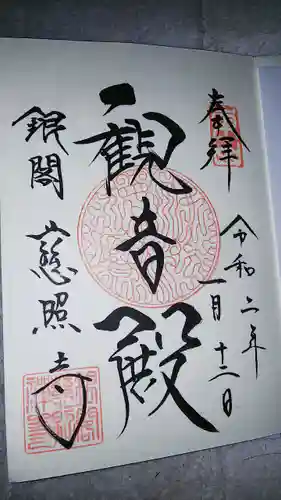 奉拝
令和二年
一月十二日
観音殿
銀閣
慈照寺